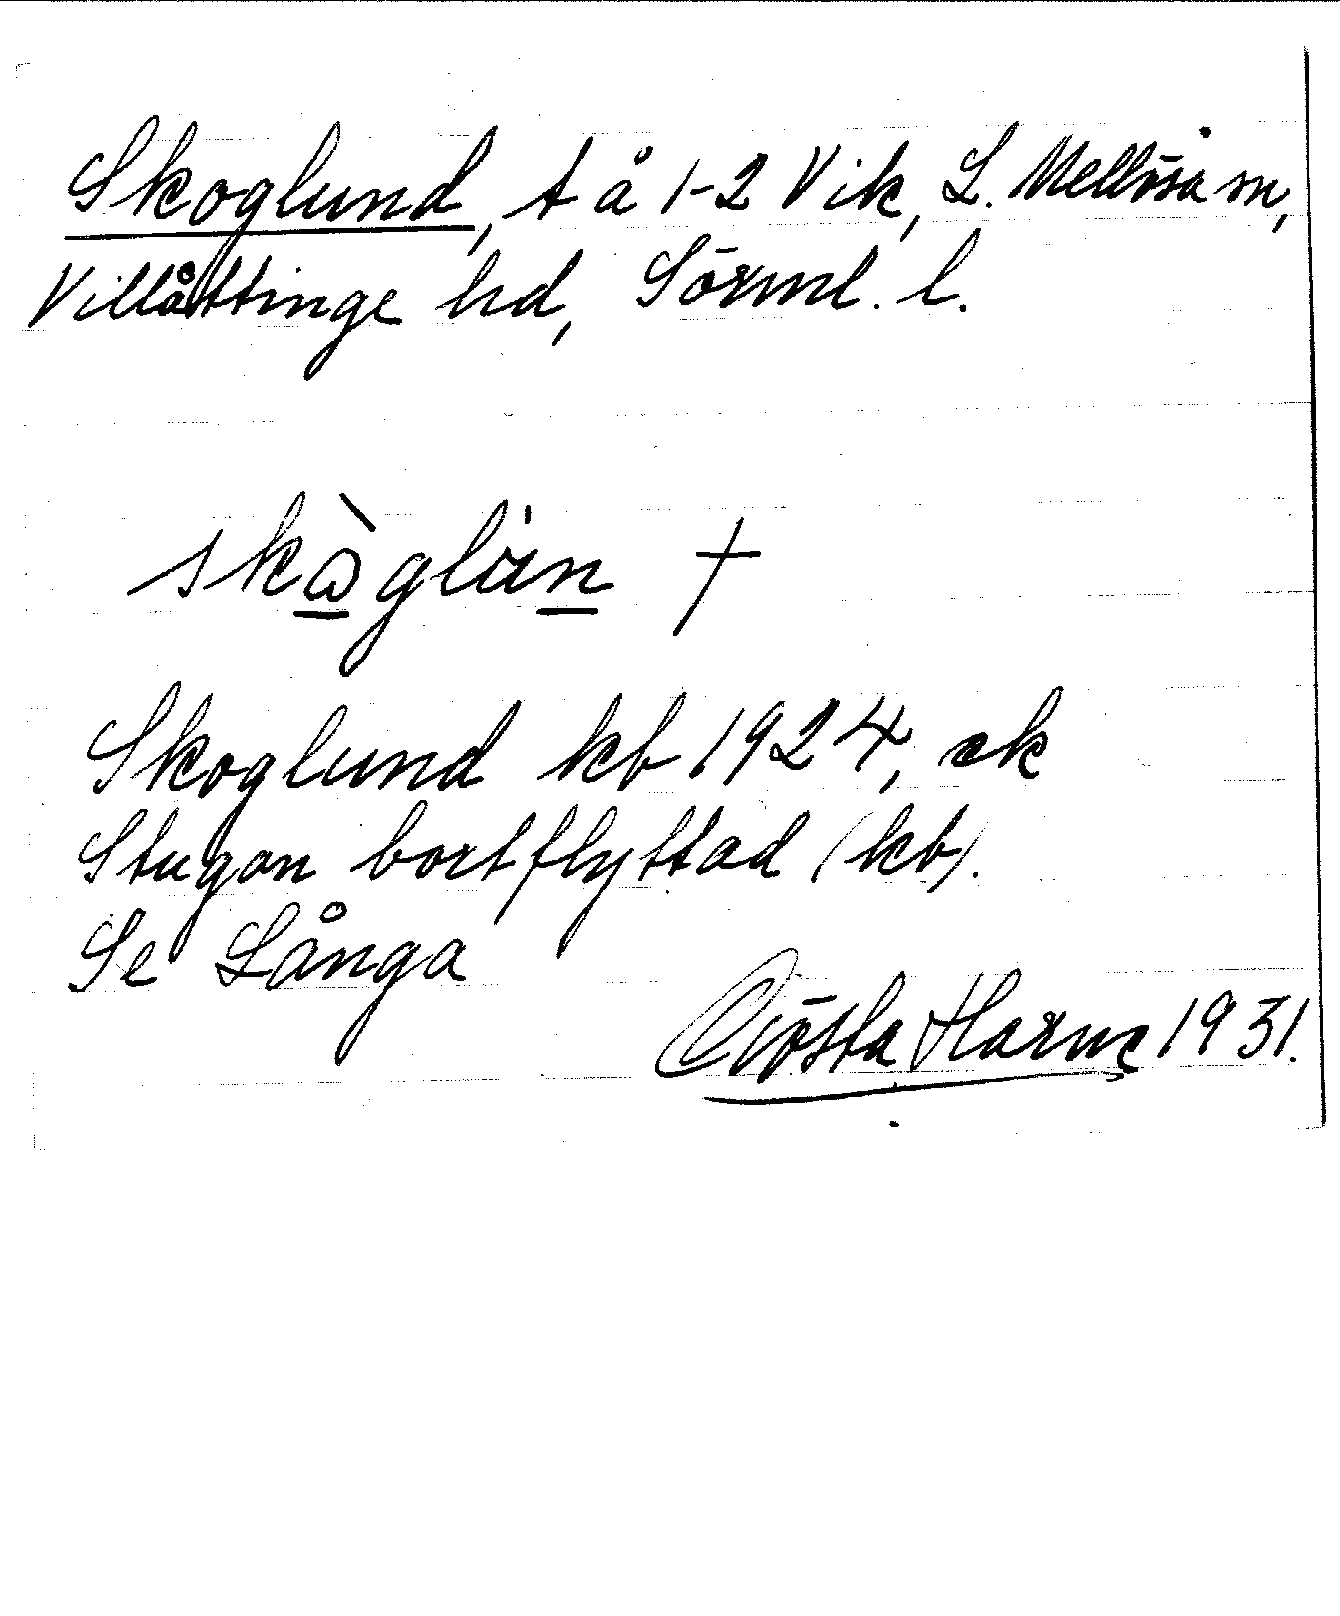 Skoglund, t å 1-2 Vik, L. Mellösa sn,
Villåttinge hd, Sörml. l.
skɷ̀glu̇n †
Skoglund kb 1924, ek
Stugan bortflyttad (kb).
Se Långa
Gösta Harne 1931.